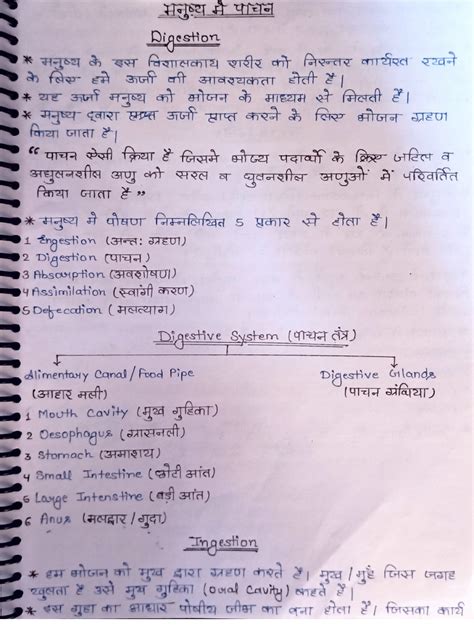 मनुष्य में पाचन
Digestion
* मनुष्य के इस विशालकाय शरीर को निरन्तर कार्यरत रखने
के लिए हमे ऊर्जा की आवश्यकता होती है।
* यह ऊर्जा मनुष्य को भोजन के माध्यम से मिलती है।
* मनुष्य द्वारा ऊर्जा प्राप्त करने के लिए भोजन ग्रहण
किया जाता है।
“ पाचन ऐसी क्रिया है जिसमे भोज्य पदार्थो के जटिल व
अघुलनशील अणु को सरल व घुलनशील अणुओं में परिवर्तित
किया जाता है ”
* मनुष्य मे पोषण निम्नलिखित 5 प्रकार से होता है।
1 Engestion (अन्त: ग्रहण)
2 Digestion (पाचन)
3 Absorption (अवशोषण)
4 Assimilation (स्वांगी करण)
5 Defecation ( मलत्याग)
Digestive System (पाचन तंत्र)
Alimentary Canal/Food Pipe
(आहार नली)
Digestive Glands
(पाचन ग्रंथिया)
1 Mouth Cavity (मुख गुहिका)
2 Oesophagus (ग्रासनली)
3 Stomach (अमाशय)
4 Small Intestine (छोटी आंत)
5 Large Intenstine (बड़ी आंत)
6 Anus (मलद्वार /गुदा)
Ingestion
* हम भोजन को मुख द्वारा ग्रहण करते है। मुख / मुहँ जिस जगह
खुलता है उसे मुख गुहिका (Oral Cavity) कहते हैं।
* इस गुहा का आधार पोषीय जीभ का बना होता है। जिसका कार्य